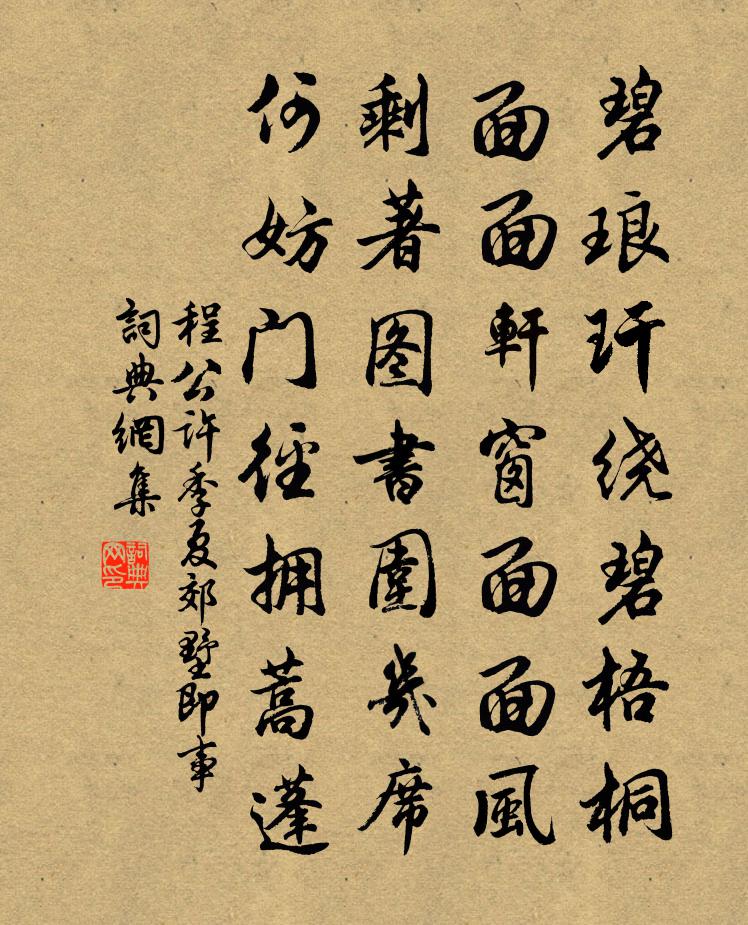 碧琅玕绕碧梧桐
面面軒窗面面風
剩著图書圍幾席
何妨门徑拥蒿蓬
程公许季夏郊墅即事
詞典網集
詞典网印